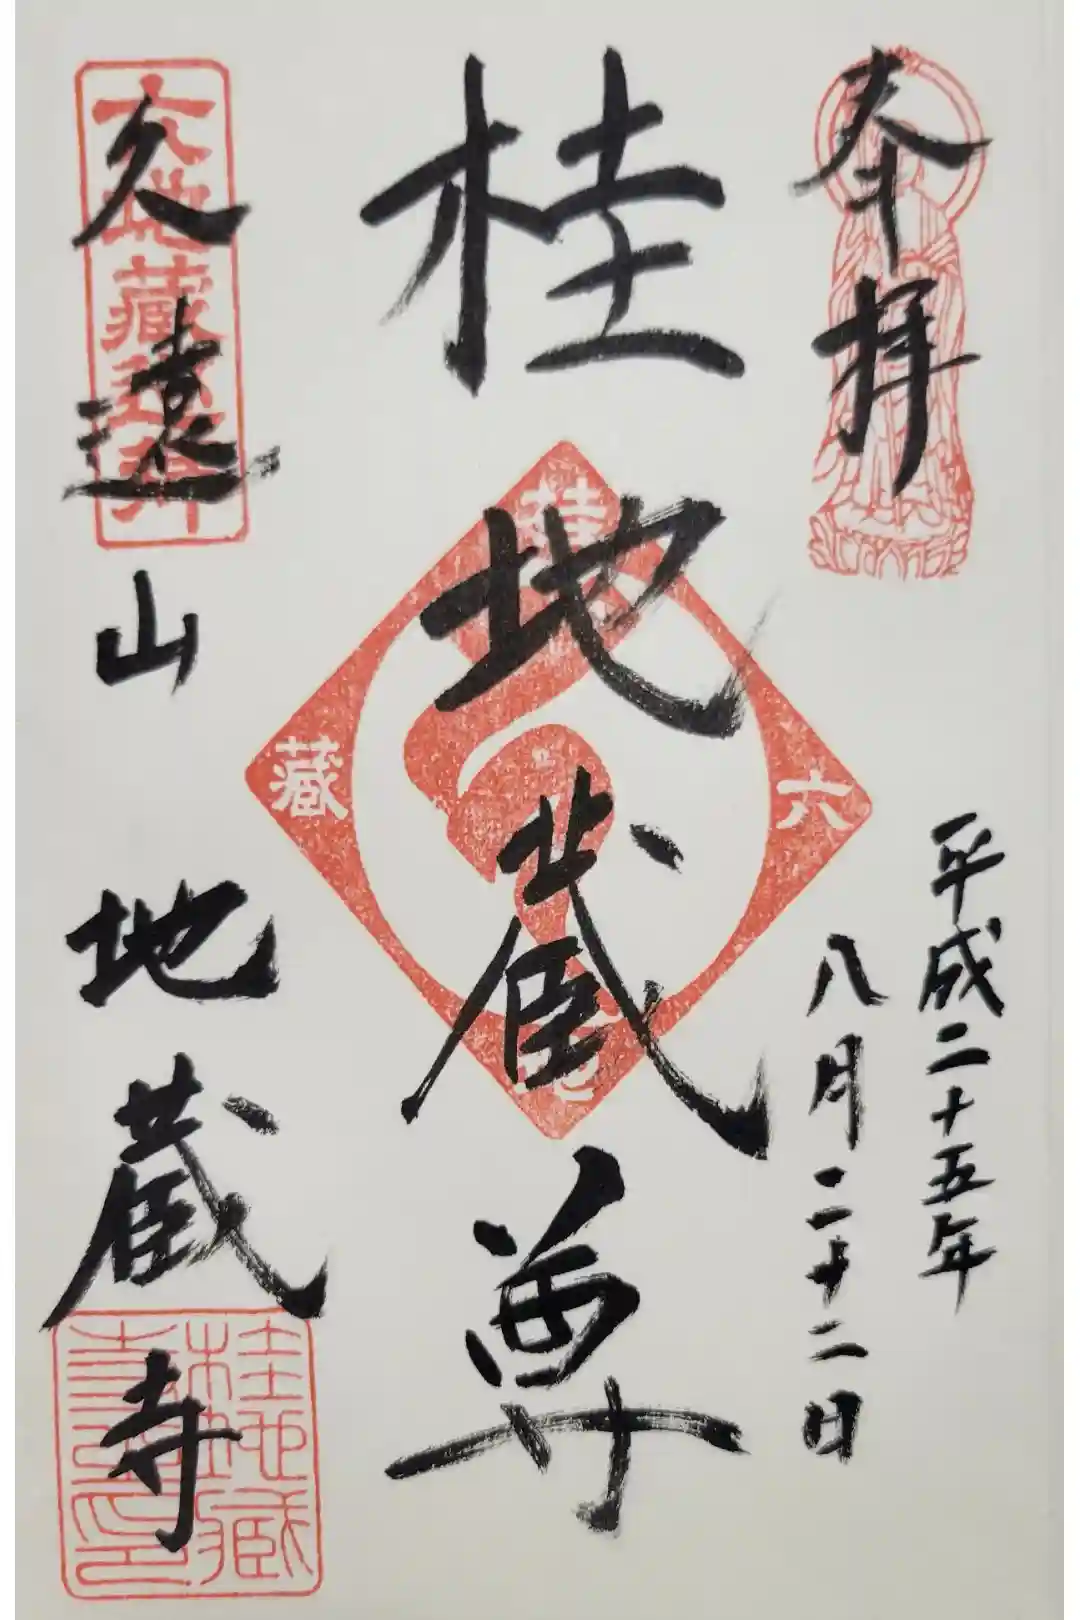 奉拝
平成二十五年
八月二十二日
桂地蔵尊
桂
六
地
藏
久遠山
地蔵寺
六地藏巡拜
桂地藏
寺印